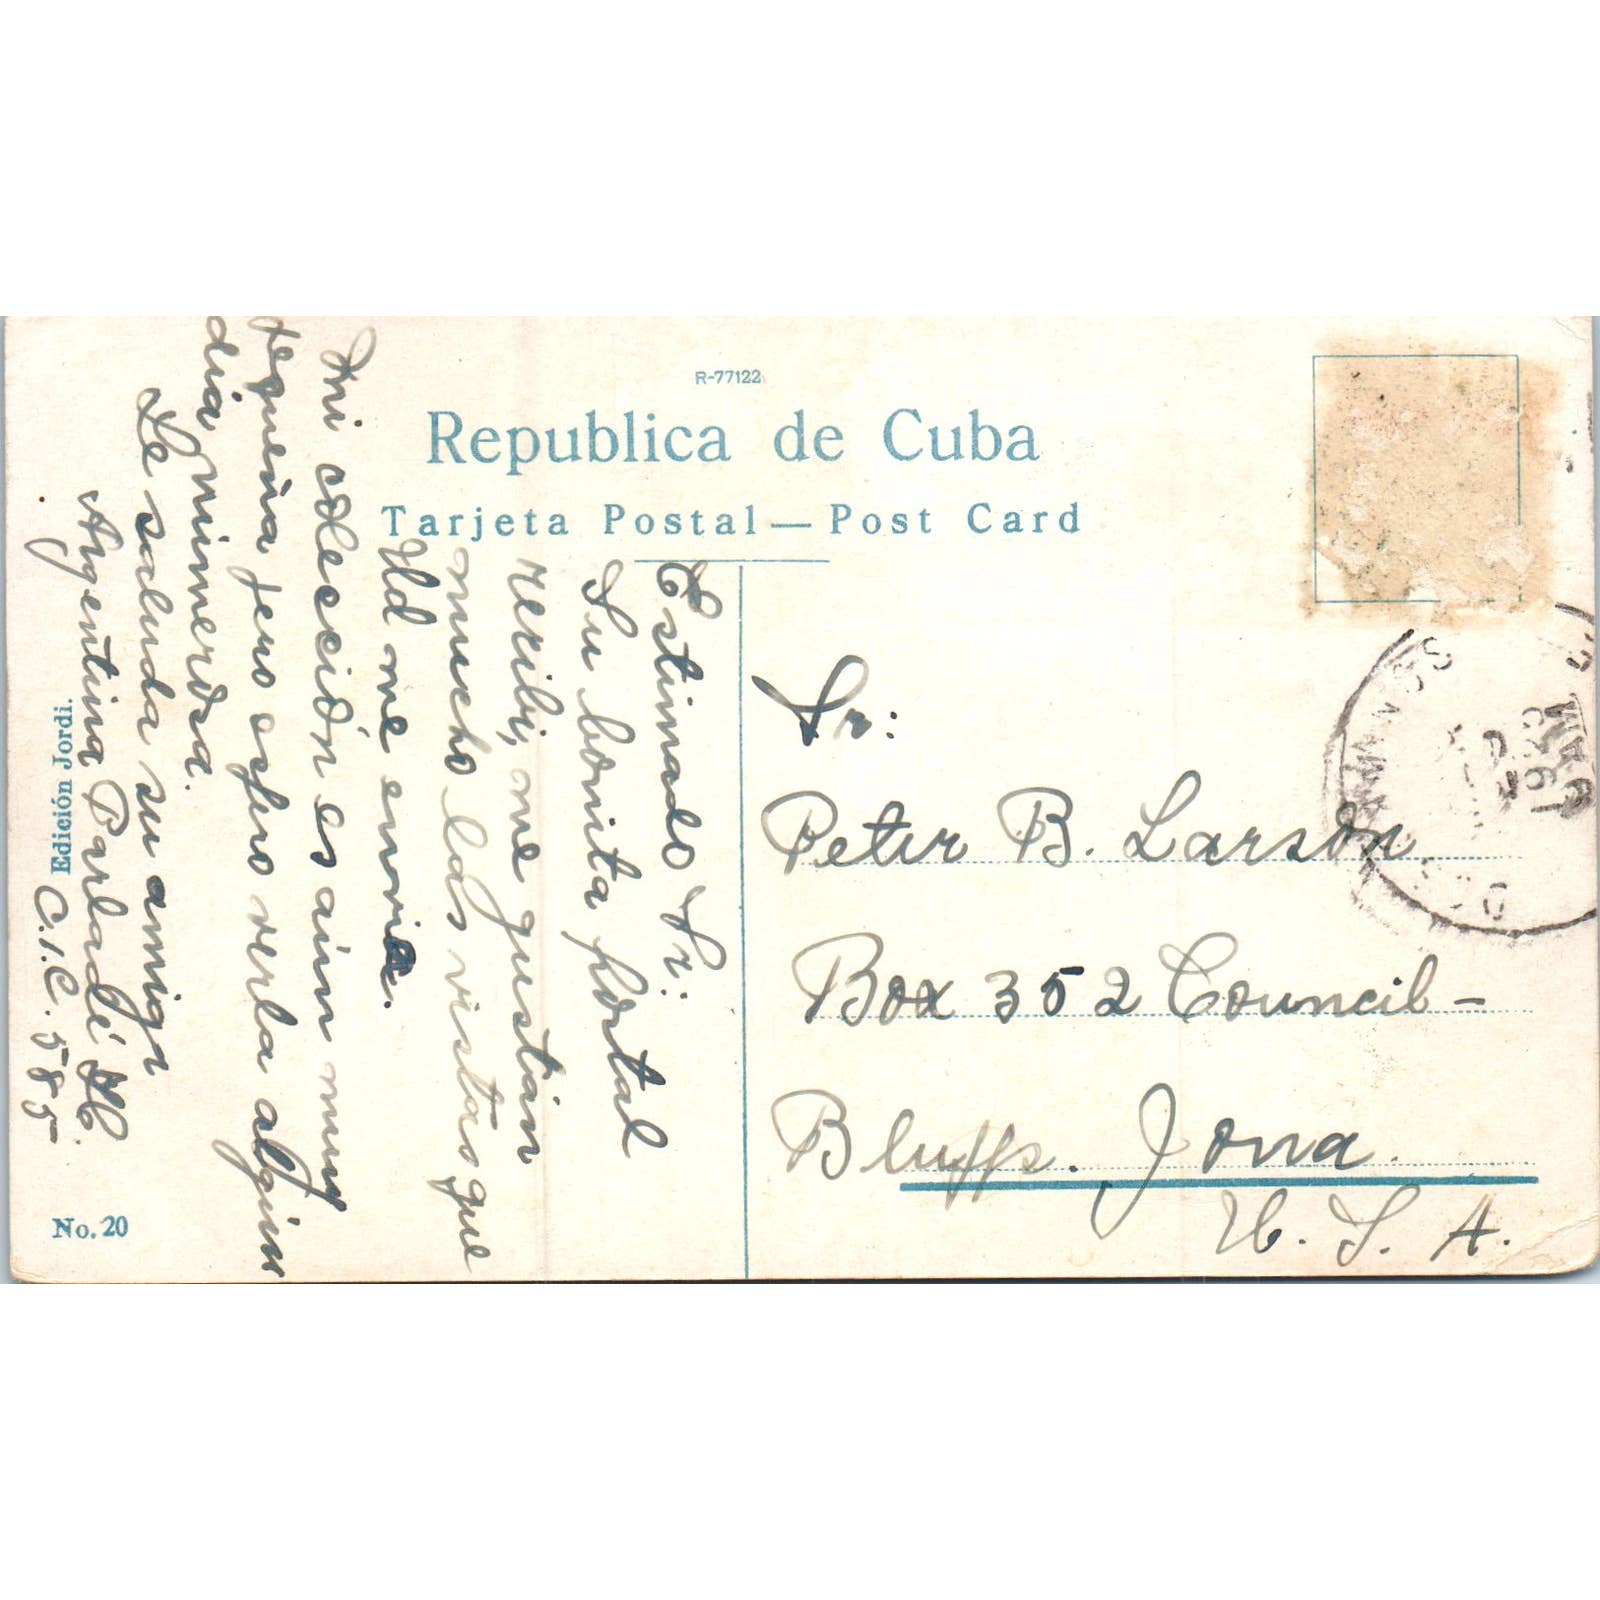 R-77122
Republica de Cuba
Tarjeta Postal — Post Card
Estimado Sr:
Su bonita postal
recibi, me gustan
mucho las vistas que
Ud me envia.
Mi colección es aún muy
pequeña pero espero verla algún
dia numerosa.
Le saluda su amiga
Argentina
C.I.C. 585
Edición Jordi.
No. 20
Sr:
Peter B. Larson
Box 352 Council-
Bluffs. Iowa.
U. S. A.